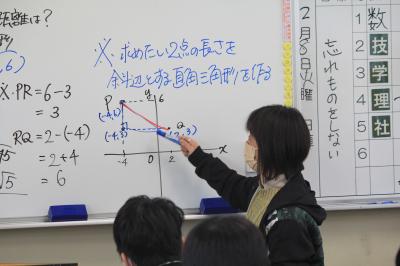 距離は?
形
,6)
※. 求めたい2点の長さを
斜辺とする直角三角形を作る
※. PR = 6-3
= 3
RQ = 2-(-4)
= 2+4
= 6
√5
√5
P
(-4,6)
y
6
Q
(2,3)
(-4,3)
-4
0
2
x
2月8日火曜日
忘れものをしない
1 数
2 技
3 学
4 理
5 社